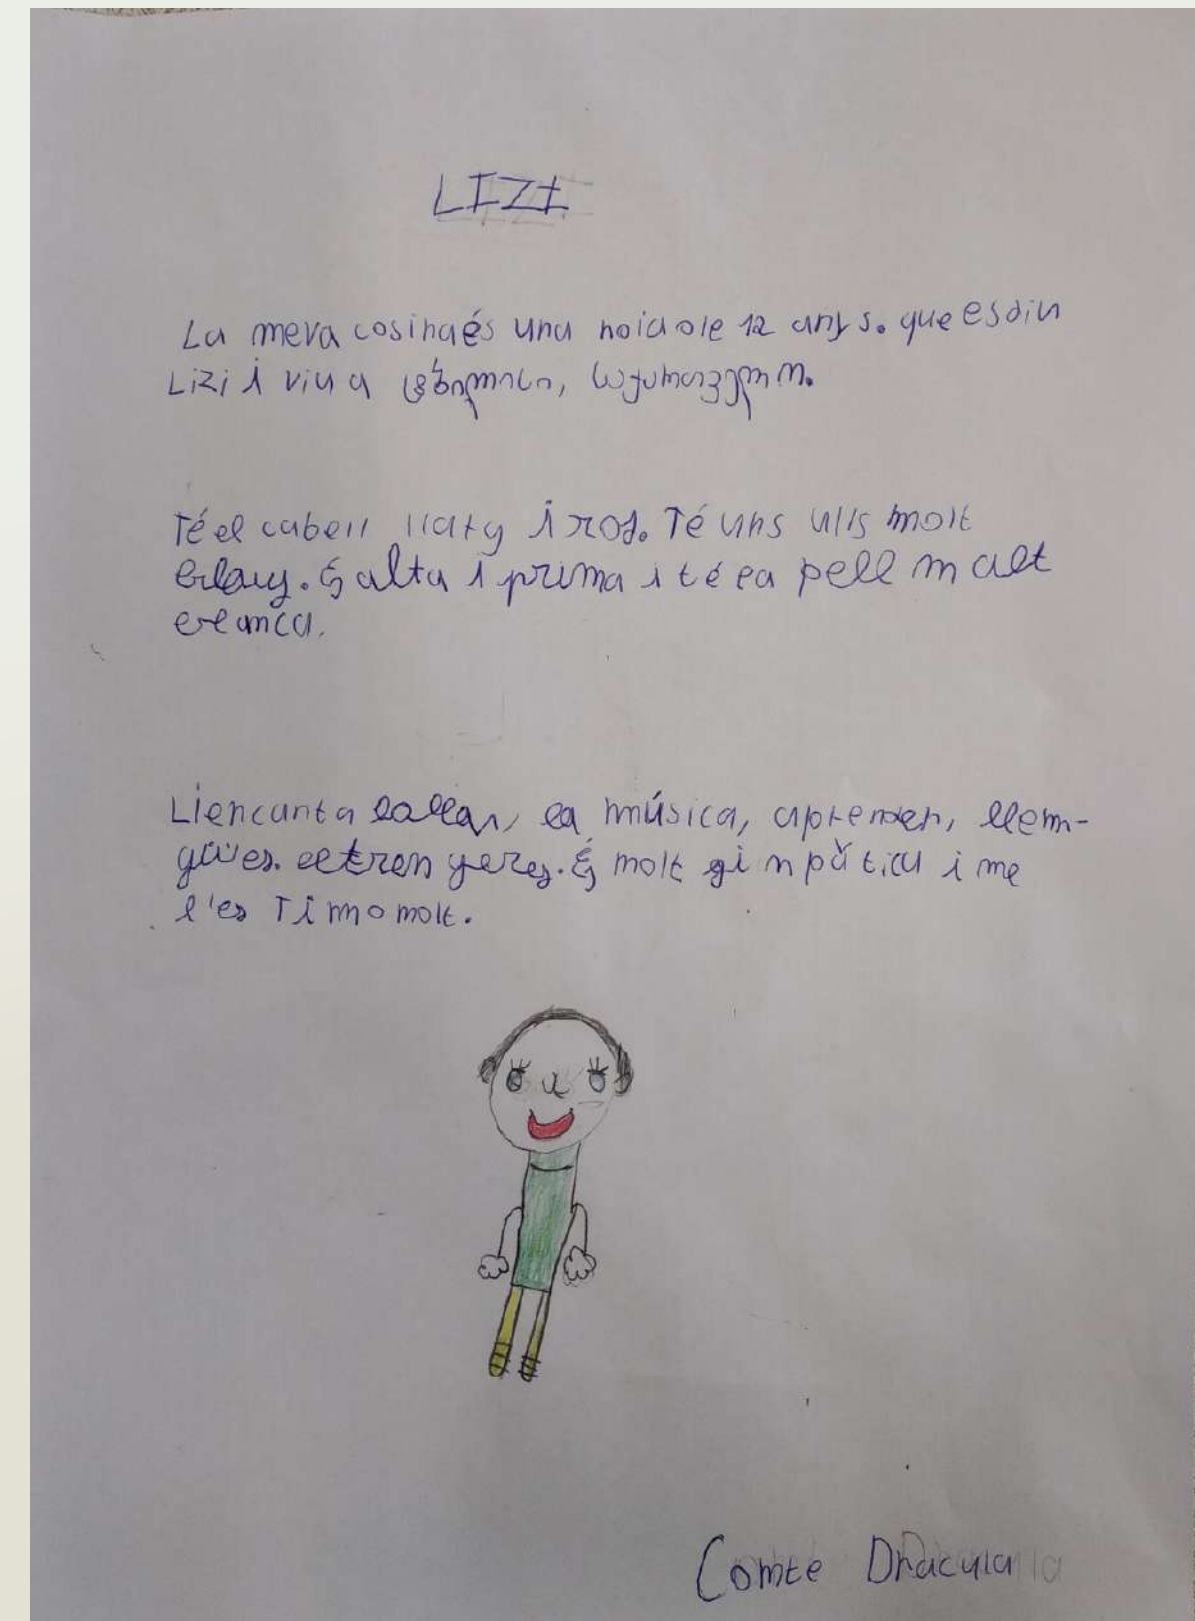 LIZI
La meva cosina és una noia de 12 anys. que es diu
Lizi i viu a თბილისი, საქართველო.
Té el cabell llarg i ros. Té uns ulls molt
blaus. És alta i prima i té la pell molt
blanca.
Li encanta ballar, la música, aprender, llen-
gües. estrangeres. És molt simpàtica i me
l'es Timo molt.
Comte Dracula